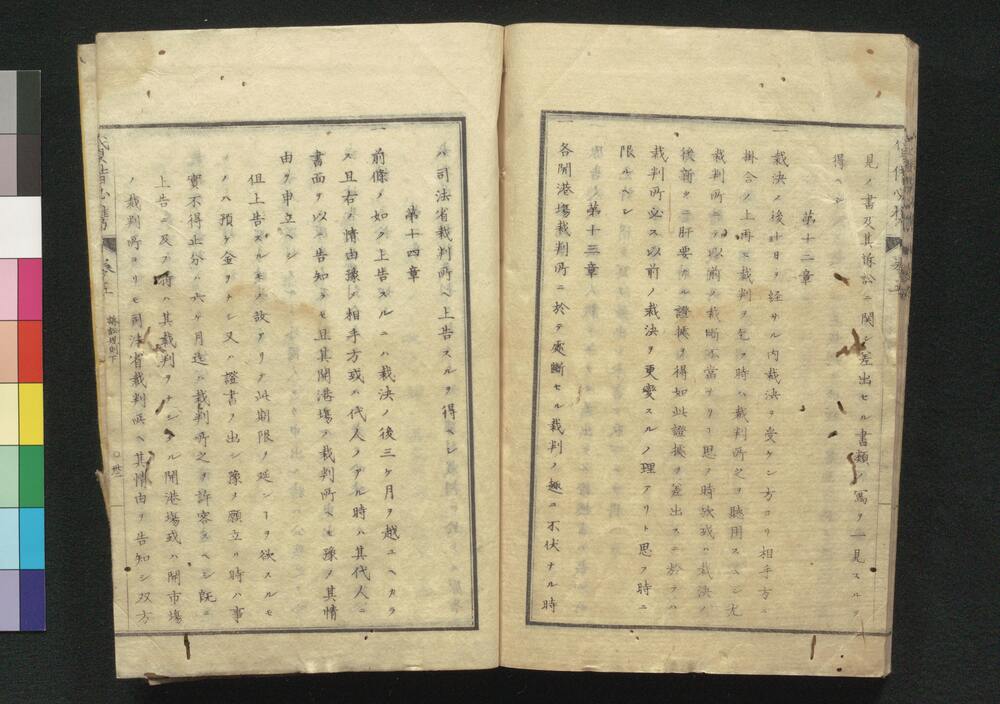 見ノ書及其訴訟ニ関シ差出セル書類ノ写ヲ一見スルヲ
得ヘシ
第十二章
一裁決ノ後十日ヲ経サル内裁決ヲ受ケシ方ヨリ相手方ニ
掛合ノ上再ヒ裁判ヲ乞フ時ハ裁判所之ヲ聴用スヘシ尤
裁判所ニテ以前ノ裁断不当ナリト思フ時或ハ裁決ノ
後新ニ肝要ナル證拠ヲ得如此證拠ヲ差出スニ於テハ
裁判所必ス以前ノ裁決ヲ更変スルノ理アリト思フ時ニ
限ルヘシ
第十三章
一各開港場裁判所ニ於テ処断セル裁判ノ趣ニ不伏ナル時
ハ司法省裁判所ヘ上告スルヲ得ヘシ
第十四章
一前條ノ如ク上告スルニハ裁決ノ後三ケ月ヲ越ユヘカラ
ス且右ノ情由豫メ相手方或ハ代人ノアル時ハ其代人ニ
書面ヲ以テ告知ラセ且其開港場ノ裁判所ヘモ豫メ其情
由ヲ申立ヘシ
但上告スルモノ故アリテ此期限ノ延ンヿヲ欲スルモ
ノハ預ケ金ヲナシ又ハ證書ヲ出シ豫メ願立ル時ハ事
實不得止分ハ六ケ月迄ハ裁判所之ヲ許容スヘシ既ニ
上告ニ及フ時ハ其裁判ヲナシタル開港場或ハ開市場
ノ裁判所ヨリモ司法省裁判所ヘ其情由ヲ告知シ双方
訴訟規則下